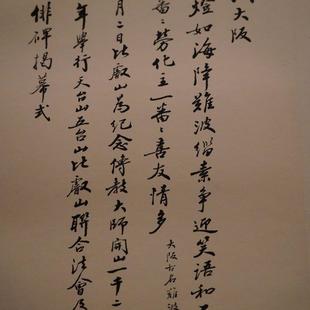 大阪
燈如海降難波緇素爭迎笑語和
番々勞化主一番々喜友情多
大阪古名難波
月二日比叡山為紀念傳教大師開山一千二
年舉行天台山五台山比叡山聯合法會及
俳碑揭幕式